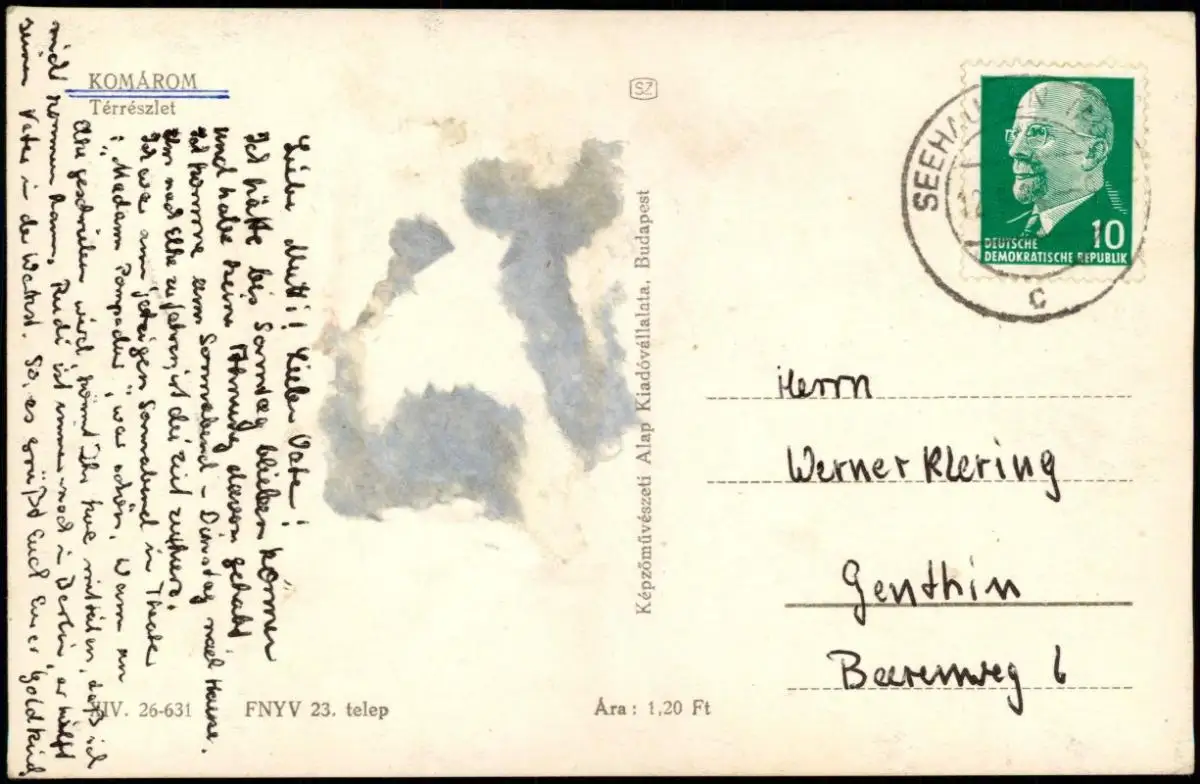 KOMÁROM
Térrészlet
SZ
SEEHAUSEN
12
C
10
DEUTSCHE
DEMOKRATISCHE REPUBLIK
Liebe Mutti! Lieber Vater!
Ich hätte bis Sonntag bleiben können
und habe keine Ahnung davon gehabt.
Ich komme am Sonnabend – Dienstag nach Hause.
nach Elbe zu fahren, ist die Zeit zu kurz.
Ich war am jetzigen Sonnabend im Theater
i. "Madam Pompadur", war schön. Wann an
Elke geschrieben wird, könnt Ihr kurz mitteilen, daß ich
nicht kommen kann, Rudi ist immer noch in Berlin, er hilft
seinem Vater in der Werkst. So, es grüßt Euch Euer Goldkind
Képzőművészeti Alap Kiadóvállalata, Budapest
Herrn
Werner Klering
Genthin
Beerenweg 6
IV. 26-631 FNYV 23. telep
Ára: 1,20 Ft